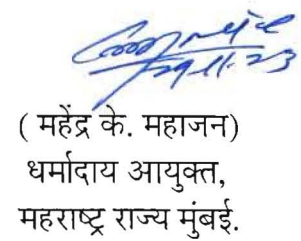 29-11-23
( महेंद्र के. महाजन)
धर्मादाय आयुक्त,
महराष्ट्र राज्य मुंबई.